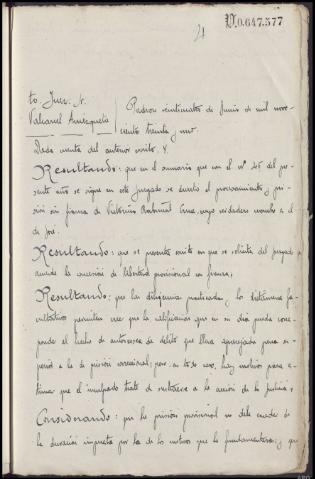 21
N.0.647.577
to. Juez. Sr.
Padron veintinueve de Junio de mil nove-
ciento treinta y uno.
Dada cuenta del anterior escrito. y
Resultando: que en el sumario que con el nº del pre-
sente año se sigue en este Juzgado se decretó el procesamiento y pri-
sión sin fianza de Victorino cuyo verdadero nombre es el
de José.
Resultando: que se presenta escrito en que se solicita del Juzgado se
acuerde la concesión de libertad provisional sin fianza;
Resultando: que las diligencias practicadas, y lo dictámenes fa-
cultativos permiten creer que la calificación que en su día pueda corres-
ponder al hecho de autos sea de delito que lleva aparejada pena su-
perior a la de prisión correccional; pero en todo caso, hay motivos para es-
timar que el inculpado trate de sustraerse a la acción de la Justicia;
Considerando: que la prisión provisional no debe exceder de
la duración impuesta por la de los motivos que la fundamentaron; y que